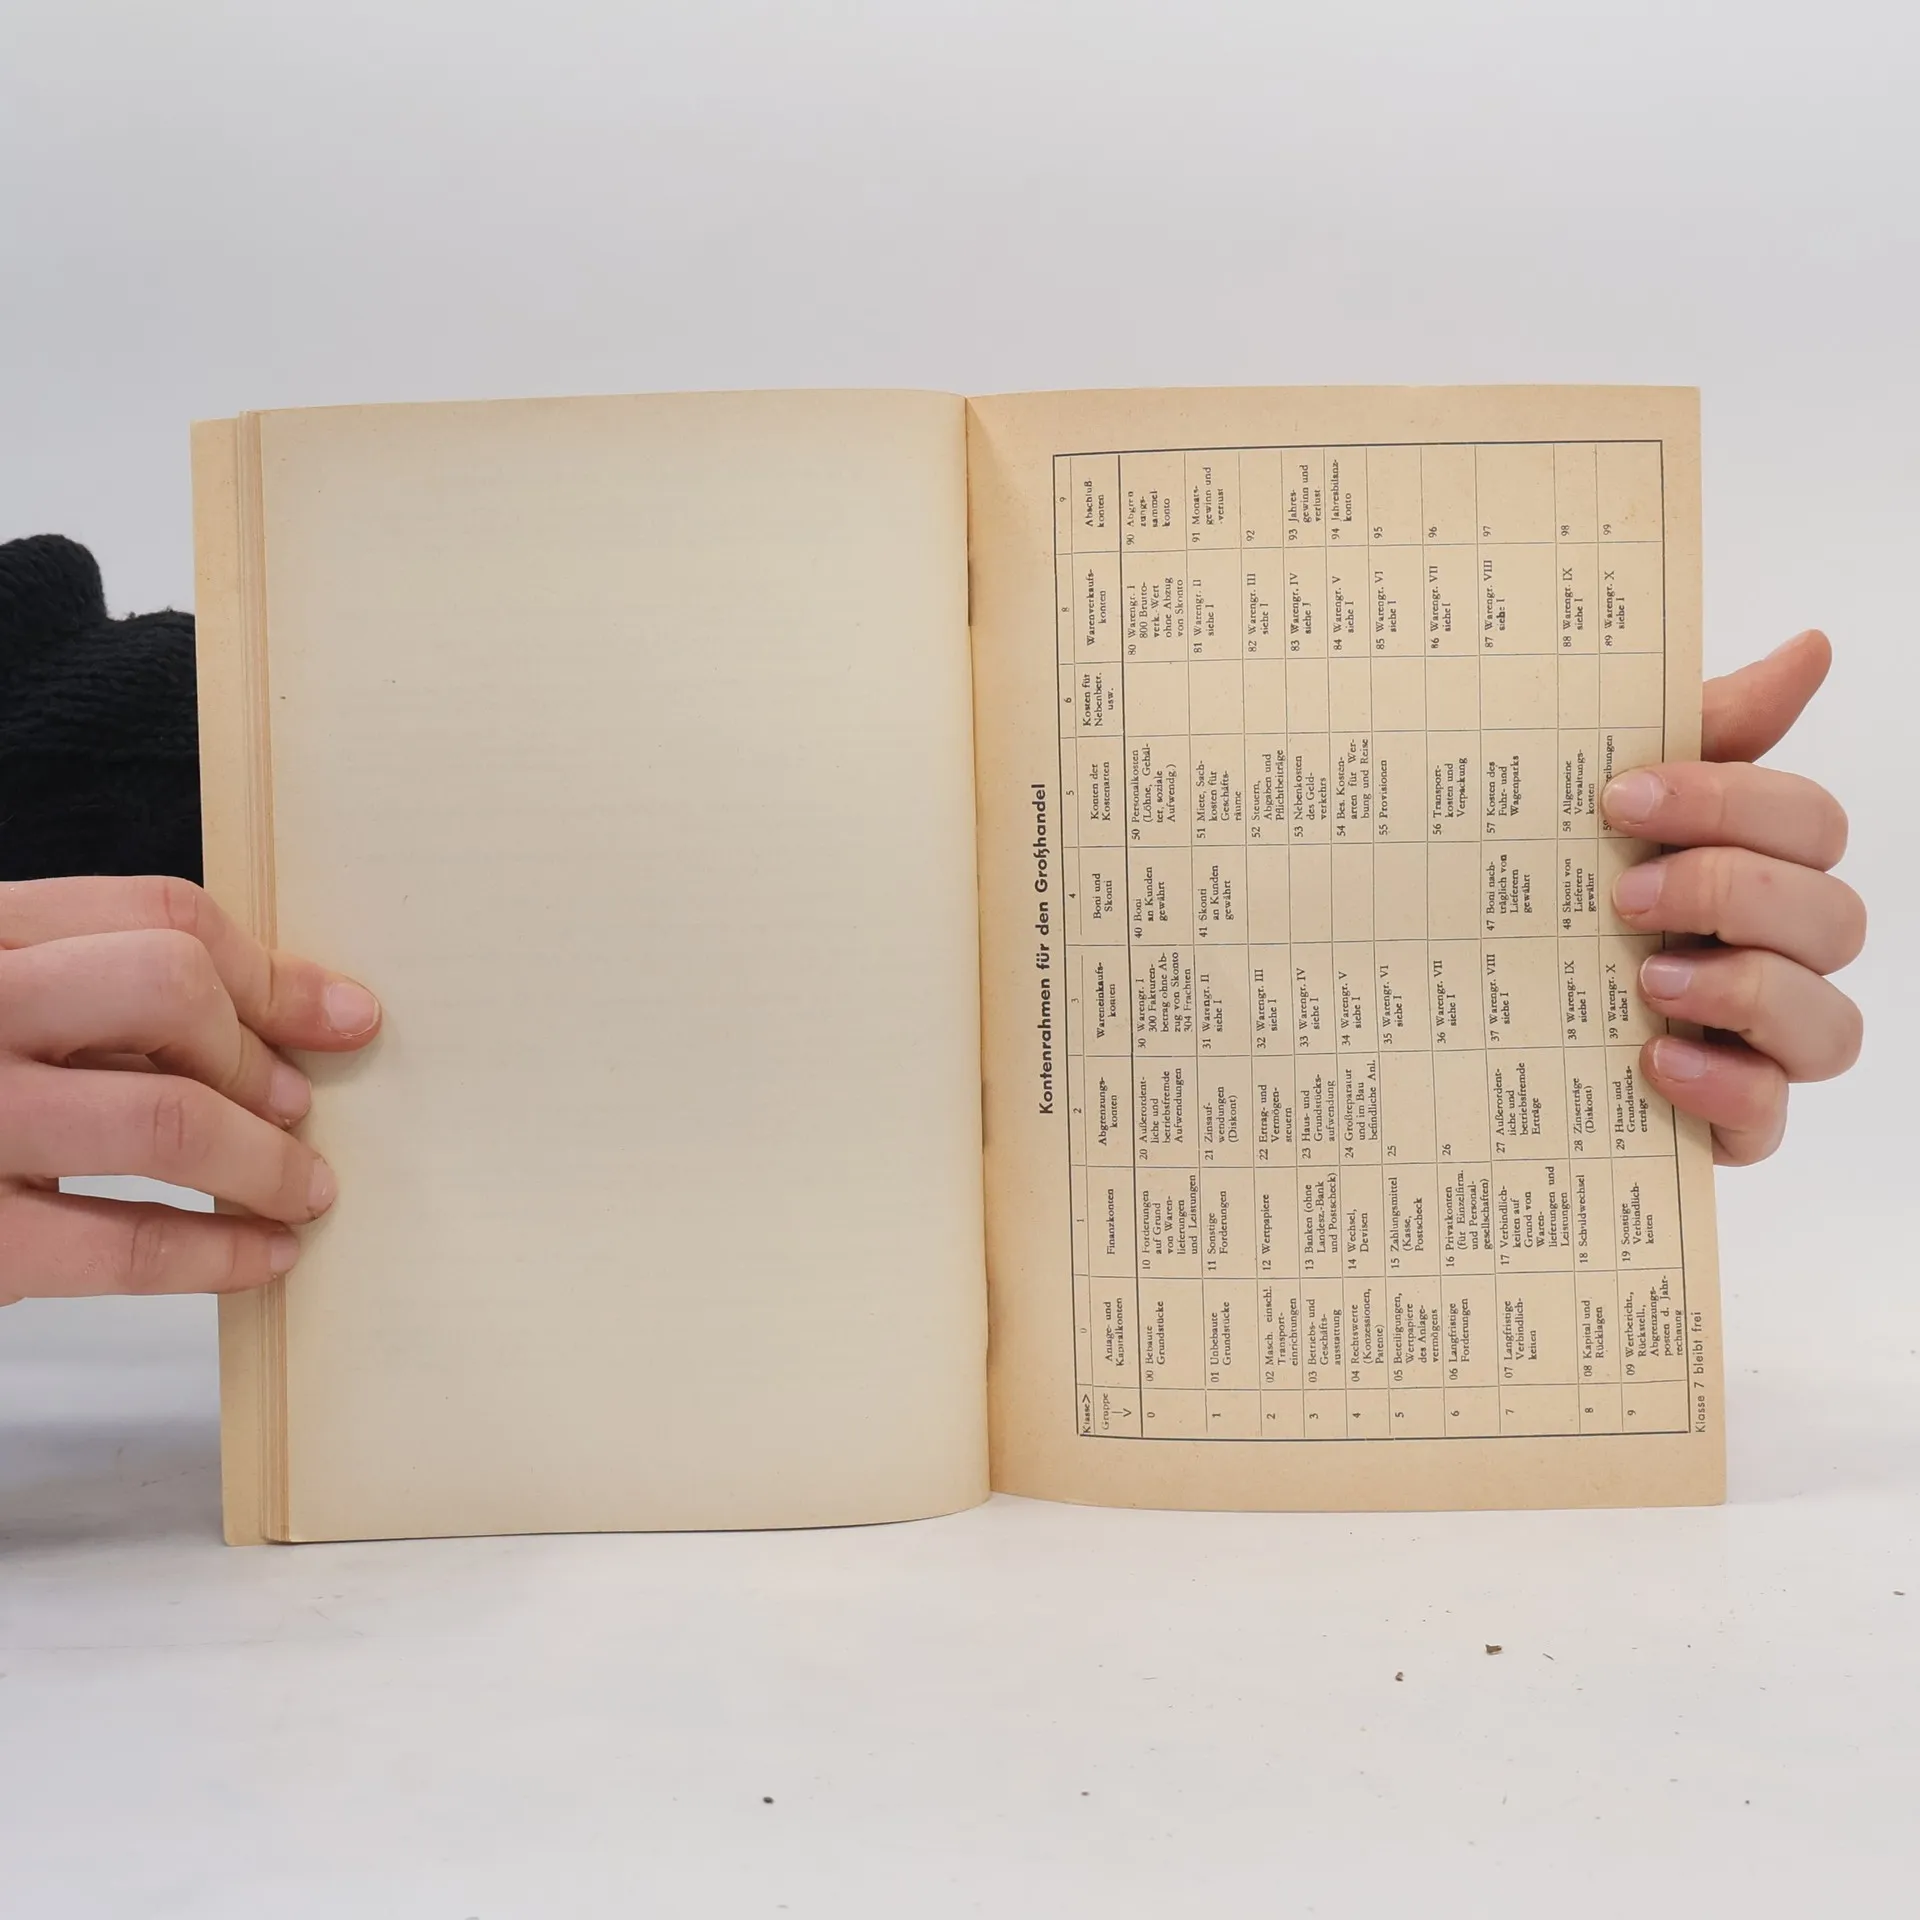 Kontenrahmen für den Großhandel
Klasse> 0 1 2 3 4 5 6 8 9
Gruppe
V
Anlage- und
Kapitalkonten
Finanzkonten
Abgrenzungs-
konten
Wareneinkaufs-
konten
Boni und
Skonti
Konten der
Kostenarten
Kosten für
Nebenbetr.
usw.
Warenverkaufs-
konten
Abschluß
konten
0
00 Bebaute
Grundstücke
10 Forderungen
auf Grund
von Waren-
lieferungen
und Leistungen
20 Außerordent-
liche und
betriebsfremde
Aufwendungen
30 Warengr. I
300 Fakturen-
betrag ohne Ab-
zug von Skonto
304 Frachten
40 Boni
an Kunden
gewährt
50 Personalkosten
(Löhne, Gehäl-
ter, soziale
Aufwendg.)
80 Warengr. I
800 Brutto-
verk.-Wert
ohne Abzug
von Skonto
90 Abgren
zungs-
sammel
konto
1
01 Unbebaute
Grundstücke
11 Sonstige
Forderungen
21 Zinsauf-
wendungen
(Diskont)
31 Warengr. II
siehe I
41 Skonti
an Kunden
gewährt
51 Miete, Sach-
kosten für
Geschäfts-
räume
81 Warengr. II
siehe I
91 Monats-
gewinn und
-verlust
2
02 Masch. einschl.
Transport-
einrichtungen
12 Wertpapiere
22 Ertrag- und
Vermögen-
steuern
32 Warengr. III
siehe I
52 Steuern,
Abgaben und
Pflichtbeiträge
82 Warengr. III
siehe I
92
3
03 Betriebs- und
Geschäfts-
ausstattung
13 Banken (ohne
Landesz.-Bank
und Postscheck)
23 Haus- und
Grundstücks-
aufwendung
33 Warengr. IV
siehe I
53 Nebenkosten
des Geld-
verkehrs
83 Warengr. IV
siehe I
93 Jahres-
gewinn und
verlust
4
04 Rechtswerte
(Konzessionen,
Patente)
14 Wechsel,
Devisen
24 Großreparatur
und im Bau
befindliche Anl.
34 Warengr. V
siehe I
54 Bes. Kosten-
arten für Wer-
bung und Reise
84 Warengr. V
siehe I
94 Jahresbilanz-
konto
5
05 Beteiligungen,
Wertpapiere
des Anlage-
vermögens
15 Zahlungsmittel
(Kasse,
Postscheck
25
35 Warengr. VI
siehe I
55 Provisionen
85 Warengr. VI
siehe I
95
6
06 Langfristige
Forderungen
16 Privatkonten
(für Einzelfirm.
und Personal-
gesellschaften)
26
36 Warengr. VII
siehe I
56 Transport-
kosten und
Verpackung
86 Warengr. VII
siehe I
96
7
07 Langfristige
Verbindlich-
keiten
17 Verbindlich-
keiten auf
Grund von
Waren-
lieferungen und
Leistungen
27 Außerordent-
liche und
betriebsfremde
Erträge
37 Warengr. VIII
siehe I
47 Boni nach-
träglich von
Lieferern
gewährt
57 Kosten des
Fuhr- und
Wagenparks
87 Warengr. VIII
siehe I
97
8
08 Kapital und
Rücklagen
18 Schuldwechsel
28 Zinserträge
(Diskont)
38 Warengr. IX
siehe I
48 Skonti von
Lieferern
gewährt
58 Allgemeine
Verwaltungs-
kosten
88 Warengr. IX
siehe I
98
9
09 Wertbericht.,
Rückstell.,
Abgrenzungs-
posten d. Jahr-
rechnung
19 Sonstige
Verbindlich-
keiten
29 Haus- und
Grundstücks-
erträge
39 Warengr. X
siehe I
89 Warengr. X
siehe I
99
Klasse 7 bleibt frei